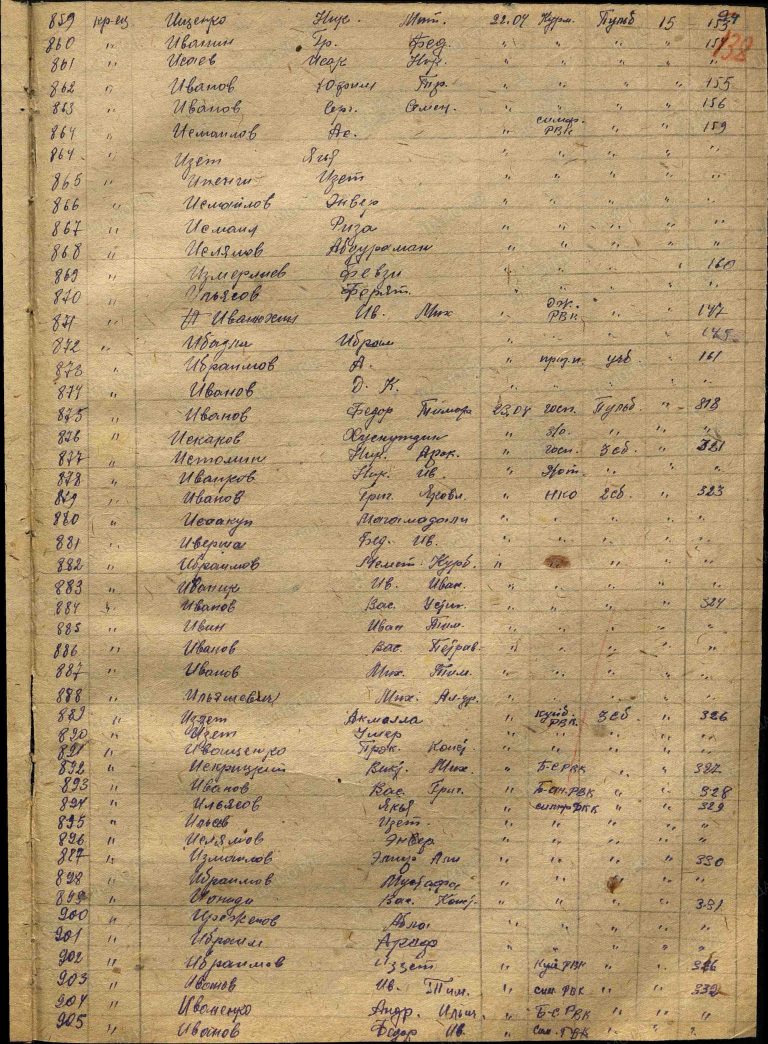 94
138
859 кр-ец Ищенко Ник. Мит. 22.04 Курм. Пульб 15 153
860 " Иванин Гр. Фед. " " " "
861 " Исаев Исак Ник. " " " " "
862 " Иванов Юфим " " " " 155
863 " Иванов Серг. Семен. " " " " 156
864 " Исмаилов Ас. " симф. РВК " " 159
864 " Изет Ягья " " " " "
865 " Изет " " " " "
866 " Исмаилов Энвер " " " " "
867 " Исмаил Риза " " " " "
868 " Ислямов Абдураман " " " " "
869 " Измерлиев Февзи " " " " 160
870 " Ильясов Ферят. " " " " "
871 " Иванюхин Ив. Мих " Дж. РВК " " 147
872 " Ибраим " " " " 145
873 " Ибраимов А. " учб. " 161
874 " Иванов Д. К. " " " " "
875 " Иванов Федор Тимоф 23.04 госп. Пульб " 818
876 " Искаков Хуснутдин " " " " "
877 " Истомин Ник. " госп. 3сб. " 321
878 " Иванков Ник. Ив. " " " "
879 " Иванов Григ. Яковл. " НКО 2сб " 323
880 " Исаакун Магамадали " " " " "
881 " Иверша Фед. Ив. " " " " "
882 " Ибраимов Мемет Курб. " " " " "
883 " Иваник Ив. Иван. " " " " "
884 " Иванов Вас. Устин. " " " " 324
885 " Ивин Иван Тим. " " " " "
886 " Иванов Вас. Петров. " " " " "
887 " Иванов Мих. Тим. " " " " "
888 " Ильяшевич Мих. Ал-др. " " " " "
889 " Иззет Акмолла " куйб. РВК 3сб " 326
890 " Изет Умер " " " " "
891 " Иващенко Прок. Конст " " " " "
892 " Искрицкий Викт. Мих. " Б-С РВК " " 327
893 " Иванов Вас. Григ. " Б-сп. РВК " " 328
894 " Ильясов Якья " симф РВК " " 329
895 " Ильев Изет. " " " " "
896 " Ислямов Энвер " " " " "
897 " Измаилов Али " " " " 330
898 " Ибраимов Мустафа " " " " "
899 " Вас. Конст. " " " " 331
900 " Абла " " " " "
901 " Ибраим " " " " "
902 " Ибраимов Иззет " Куйб РВК " " 326
903 " Ив. Тим. " сим РВК " " 332
904 " Иваненко Андр. Ильич. " Б-С РВК " " "
905 " Иванов Федор Ив. " сим. РВК " " "